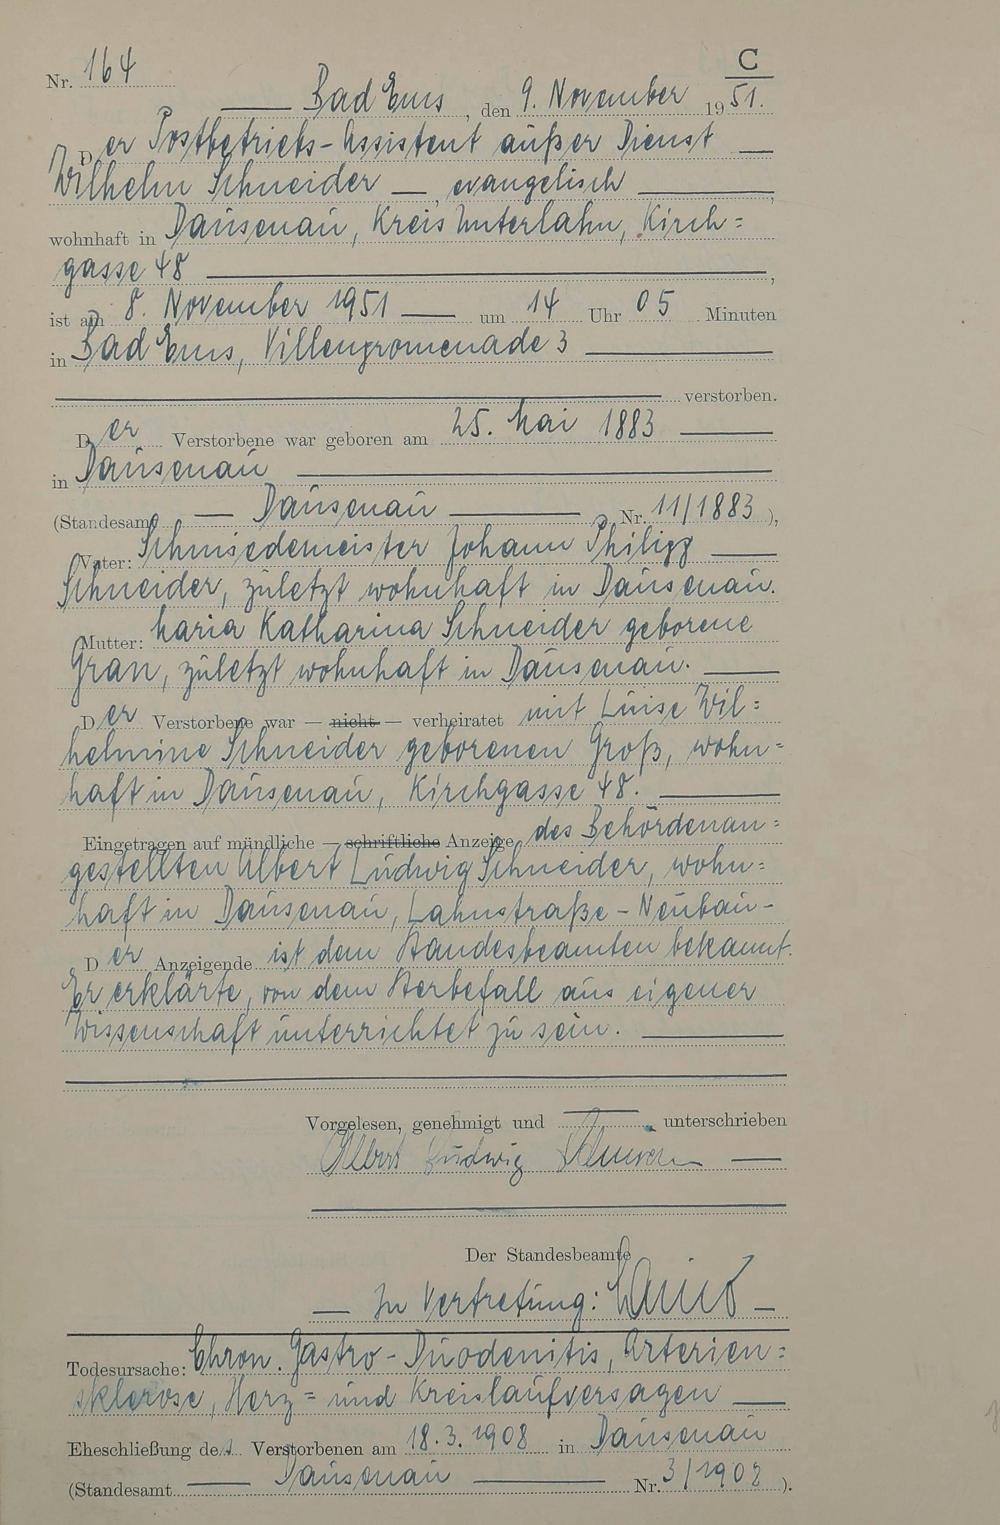 C
Nr. 164
Bad Ems, den 9. November 1951.
Der Postbetriebs-Assistent außer Dienst
Wilhelm Schneider, evangelisch,
wohnhaft in Dausenau, Kreis Unterlahn, Kirch=
gasse 48,
ist am 8. November 1951 um 14 Uhr 05 Minuten
in Bad Ems, Villenpromenade 3
verstorben.
Der Verstorbene war geboren am 25. Mai 1883
in Dausenau
(Standesamt Dausenau Nr. 11/1883),
Vater: Schmiedemeister Johann Philipp
Schneider, zuletzt wohnhaft in Dausenau.
Mutter: Maria Katharina Schneider geborene
Gran, zuletzt wohnhaft in Dausenau.
Der Verstorbene war — nicht — verheiratet mit Luise Wil=
helmine Schneider geborenen Groß, wohn=
haft in Dausenau, Kirchgasse 48.
Eingetragen auf mündliche — schriftliche Anzeige des Behördenan=
gestellten Albert Ludwig Schneider, wohn=
haft in Dausenau, Lahnstraße - Neubau -
Der Anzeigende ist dem Standesbeamten bekannt.
Er erklärte, von dem Sterbefall aus eigener
Wissenschaft unterrichtet zu sein.
Vorgelesen, genehmigt und unterschrieben
Albert Ludwig Schneider
Der Standesbeamte
In Vertretung:
Todesursache: Chron. Gastro-Duodenitis, Arterien=
sklerose, Herz= und Kreislaufversagen
Eheschließung des Verstorbenen am 18.3.1908 in Dausenau
(Standesamt Dausenau Nr. 3/1908).